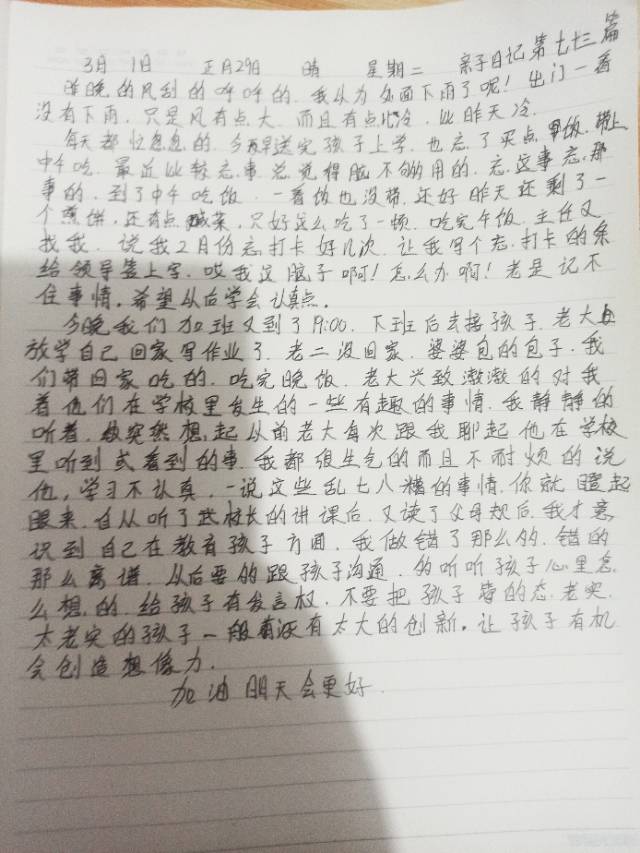 3月1日 正月29日 晴 星期二 亲子日记第七十三篇
昨晚的风刮的呼呼的.我认为外面下雨了呢!出门一看
没有下雨.只是风有点大.而且有点儿冷.比昨天冷.
每天都忙忽忽的.今早送完孩子上学.也忘了买点早饭.带上
中午吃.最近比较忘事总觉得脑不够用的.忘这事忘.那
事的.到了中午吃饭.一看饭也没带.还好昨天还剩了一
个煎饼.还有点咸菜.只好这么吃了一顿.吃完午饭.主任又
找我.说我2月份忘打卡好几次.让我写个忘.打卡的条
给领导签上字.哎我这脑子啊!怎么办啊!老是记不
住事情.希望从后学会认真点.
今晚我们加班又到了19:00.下班后去接孩子.老大
放学自己回家写作业了.老二没回家.婆婆包的包子.我
们带回家吃的.吃完晚饭.老大兴致激激的对我
着他们在学校里发生的一些有趣的事情.我静静的
听着.突然想.起从前老大每次跟我聊起他在学校
里听到或看到的事.我都很生气的而且不耐烦的说
他,学习不认真.一说这些乱七八糟的事情.你就起
眼来.自从听了武校长的讲课后.又读了父母规后.我才意
识到自己在教育孩子方面.我做错了那么多.错的
那么离谱.从后要多跟孩子沟通.多听听孩子心里怎
么想.的.给孩子有发言权.不要把孩子的态.老实.
太老实的孩子一般有没有太大的创新.让孩子有机
会创造想像力.
加油明天会更好.